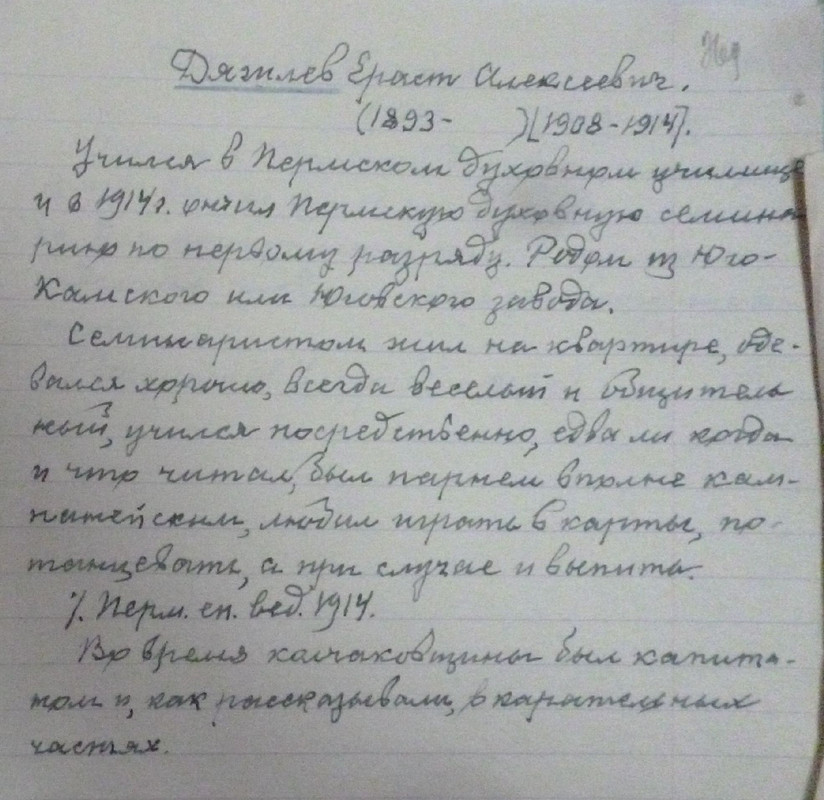 Дягилев Ераст Алексеевич.
(1893- )[1908-1914].
Учился в Пермском духовном училище
и в 1914 г. окчил Пермскую духовную семина
рию по первому разряду. Родом из Юго-
Камского или Юговского завода.
Семинаристом жил на квартире, оде-
вался хорошо, всегда веселый и общитель
ный, учился посредственно, едва ли когда
и что читал, был парнем вполне кам-
панейским, любил играть в карты, по-
танцевать, а при случае и выпить.
Перм. еп. вед. 1914.
Во время колчаковщины был капита-
ном и, как рассказывали, в карательных
частях.